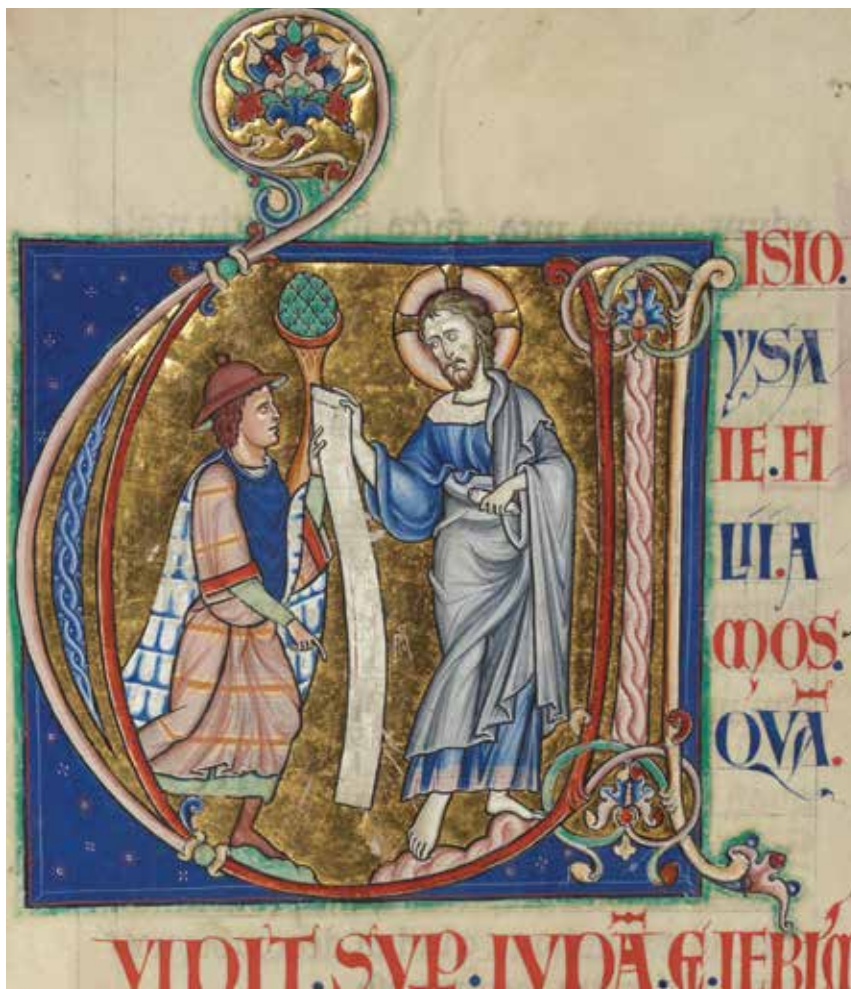 ISIO.
YSA
IE.FI
LII.A
MOS.
QVĀ.
VIDIT.SVP.IVDĀ.&.IERĪM